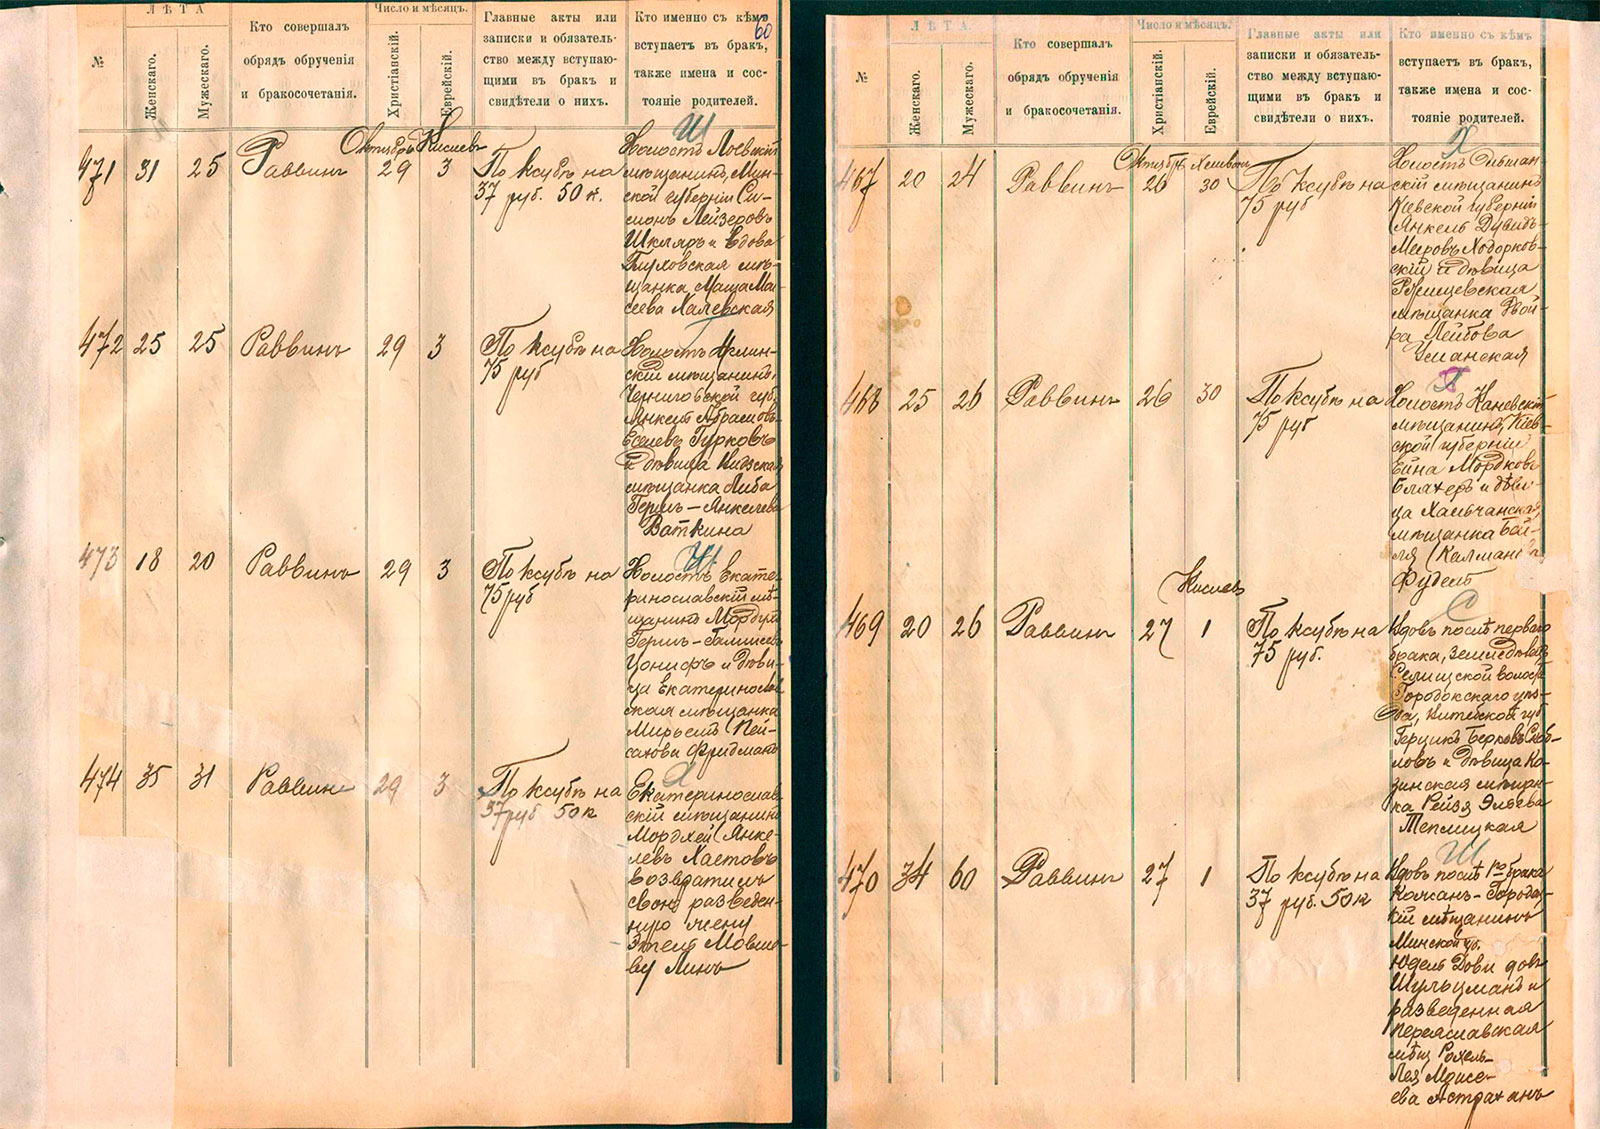 60
№
ЛѢТА
Женскаго.
Мужескаго.
Кто совершалъ
обрядъ обрученія
и бракосочетанія.
Число и мѣсяцъ.
Христіанскій.
Еврейскій.
Главные акты или
записки и обязатель-
ство между вступаю-
щими въ бракъ и
свидѣтели о нихъ.
Кто именно съ кѣмъ
вступаетъ въ бракъ,
также имена и сос-
тояніе родителей.
Ш
Октябрь Кислевъ
471 31 25 Раввинъ 29 3 По ксубѣ на
37 руб. 50 к.
Холостъ Лоевскій
мѣщанинъ, Мин-
ской губерніи Си-
монъ Лейзеровъ
Шкляръ и вдова
Глуховская мѣ-
щанка Маша Мои-
сеева Халевская
472 25 25 Раввинъ 29 3 По ксубѣ на
75 руб
Холостъ
скій мѣщанинъ,
Черниговской губ.
Янкель Абрамовъ
Еселевъ Гурковъ
и дѣвица Кидзская
мѣщанка Либа
Герш-Янкелева
Ваткина
Ш
473 18 20 Раввинъ 29 3 По ксубѣ на
75 руб
Холостъ Екате-
ринославскій мѣ-
щанинъ Мордух
Герш-
Цонифъ и дѣви-
ца Екатеринослав-
ская мѣщанка
Мирьемъ Пей-
сахова Фридманъ
Х
474 35 31 Раввинъ 29 3 По ксубѣ на
37 руб 50 к
Екатеринослав-
скій мѣщанинъ
Мордхей Янке-
левъ Хаетовъ
возвратилъ
свою разведен-
ную жену
Этель Мовшо-
ву Линъ
№
ЛѢТА.
Женскаго.
Мужескаго.
Кто совершалъ
обрядъ обрученія
и бракосочетанія.
Число и мѣсяцъ.
Христіанскій.
Еврейскій.
Главные акты или
записки и обязатель-
ство между вступаю-
щими въ бракъ и
свидѣтели о нихъ.
Кто именно съ кѣмъ
вступаетъ въ бракъ,
также имена и сос-
тояніе родителей.
Х
Октябрь Хешванъ
467 20 24 Раввинъ 26 30 По ксубѣ на
75 руб
Холостъ Ольшан-
скій мѣщанинъ
Кіевской губерніи
Янкель Дувидъ-
Меировъ Ходорков-
скій и дѣвица
Ржищевская
мѣщанка Двой-
ра Лейбова
Уманская
468 25 26 Раввинъ 26 30 По ксубѣ на
75 руб
Холостъ Каневскій
мѣщанинъ Кіев-
ской губерніи
Ейна Мордковъ
Блахеръ и дѣви-
ца Хабчанская
мѣщанка Бей-
ля Калман
Фудель
С
Кислевъ
469 20 26 Раввинъ 27 1 По ксубѣ на
75 руб.
Вдовъ послѣ перваго
брака, земледѣлецъ
Селищской волости
Городокскаго уѣз-
да, Витебской губ
Герцикъ Берковъ Соб-
ловъ и дѣвица Ко-
зинская мѣщан-
ка Рейзя Эльева
Теплицкая
Ш
470 34 60 Раввинъ 27 1 По ксубѣ на
37 руб. 50 к
Вдовъ послѣ 1го брака
Кожан-Городец-
кій мѣщанинъ
Минской гу.
Юдель Довидовъ
Шульцманъ и
разведенная
Переяславская
мѣщ Рохель-
Лея Моисе-
ева Астраханъ